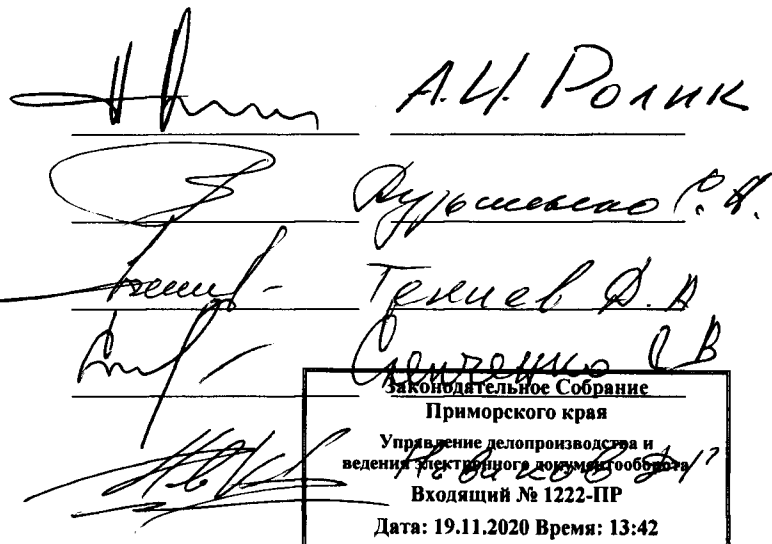 А.И. Ролик
С.
Текиев Д. А
Степченко С В
Законодательное Собрание
Приморского края
Управление делопроизводства и
ведения электронного документооборота
Новиков
Входящий № 1222-ПР
Дата: 19.11.2020 Время: 13:42